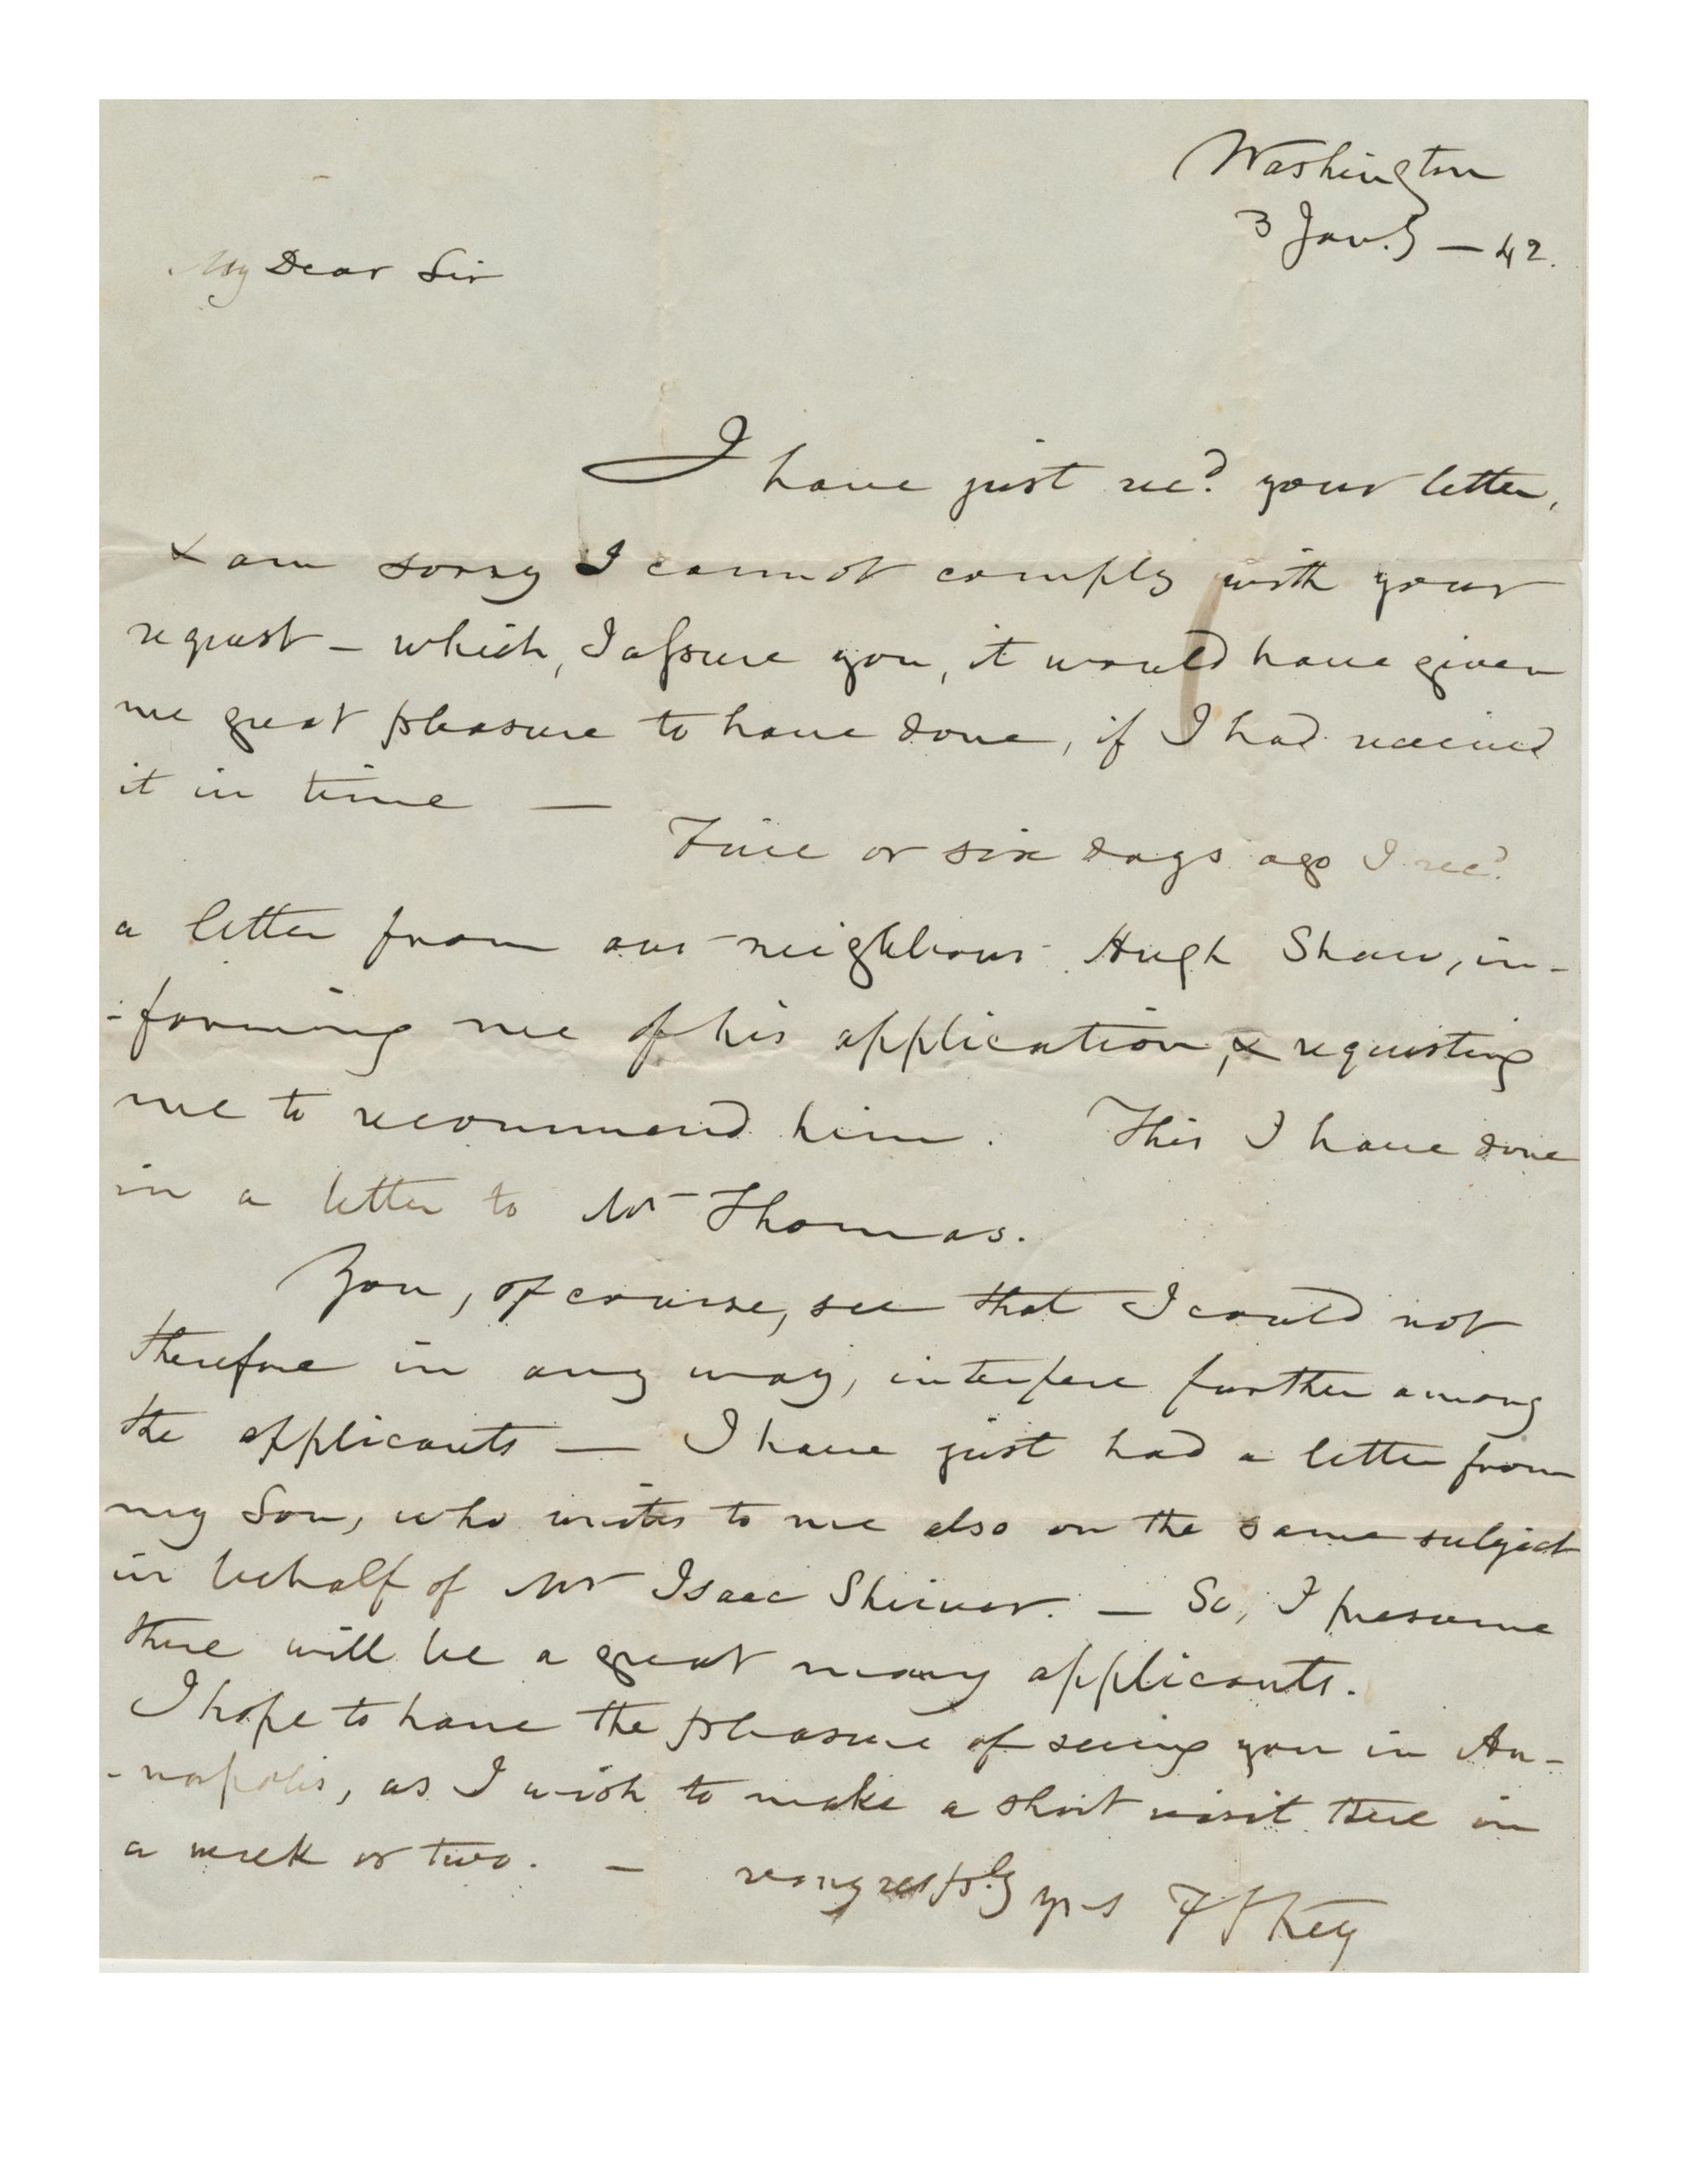 Washington
3 Jan.y — 42.
My Dear Sir
I have just recd. your letter,
& am sorry I cannot comply with your
request – which, I assure you, it would have given
me great pleasure to have done, if I had received
it in time —
Five or six days ago I recd.
a letter from our neighbour Hugh Shaw, in-
-forming me of his application, & requesting
me to recommend him. This I have done
in a letter to Mr Thomas.
You, of course, see that I could not
therefore in any way, interfere further among
the applicants — I have just had a letter from
my Son, who writes to me also on the same subject
in behalf of Mr Isaac Shriver. — So, I presume
there will be a great many applicants.
I hope to have the pleasure of seeing you in An-
-napolis, as I wish to make a short visit there in
a week or two. –
very respy yrs F S Key